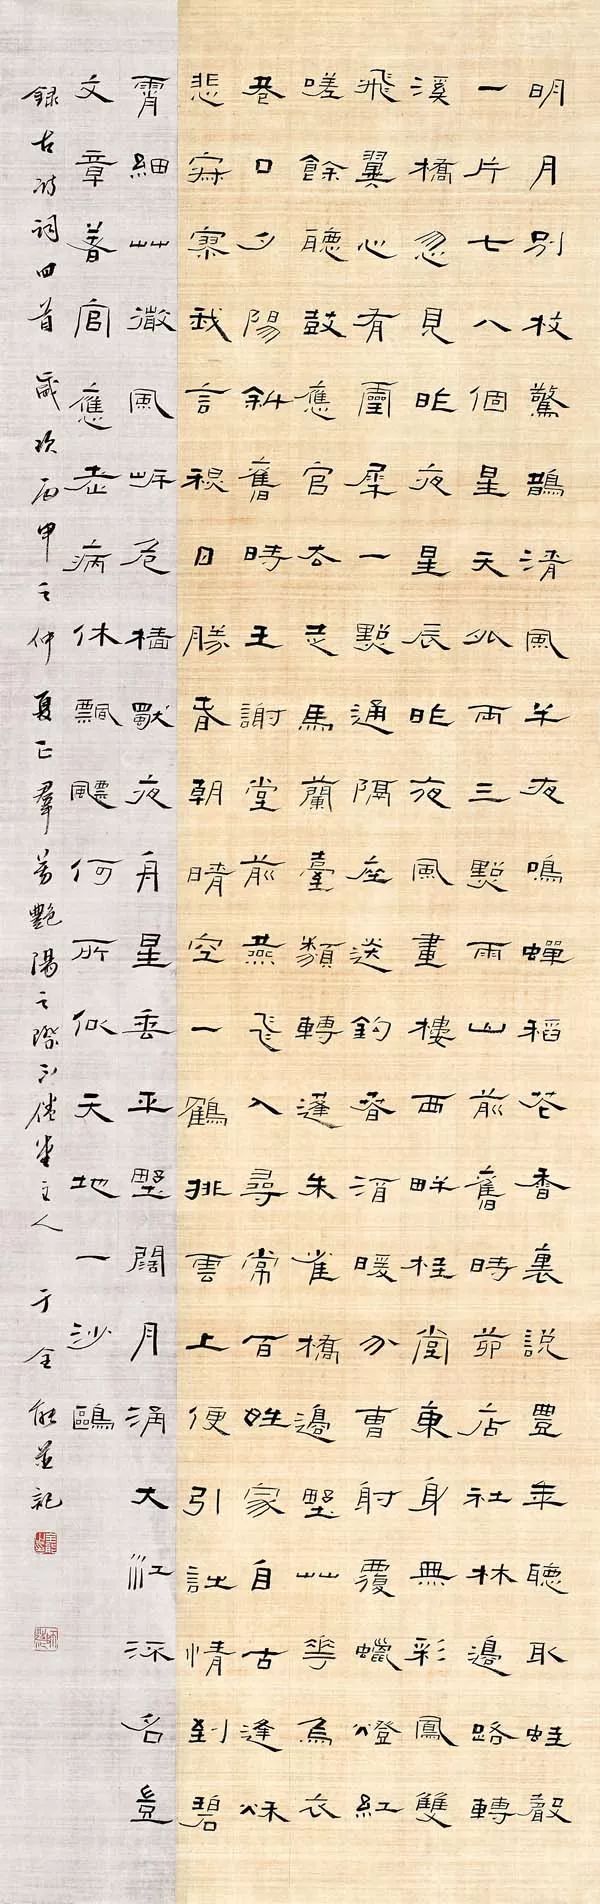 明月別枝驚鵲清風半夜鳴蟬稻花香裏說豐年聽取蛙聲
一片七八個星天外兩三點雨山前舊時茆店社林邊路轉
溪橋忽見昨夜星辰昨夜風畫樓西畔桂堂東身無彩鳳雙
飛翼心有靈犀一點通隔座送鉤春酒暖分曹射覆蠟燈紅
嗟餘聽鼓應官去走馬蘭臺類轉蓬朱雀橋邊野艸花烏衣
巷口夕陽斜舊時王謝堂前燕飛入尋常百姓家自古逢秋
悲寂寥我言秋日勝春朝晴空一鶴排雲上便引詩情到碧
霄細艸微風岸危檣獨夜舟星垂平野闊月涌大江流名豈
文章著官應老病休飄飃何所似天地一沙鷗
録古詩詞四首歲次丙申之仲夏正羣芳艷陽之際不倦堂主人于全能並記